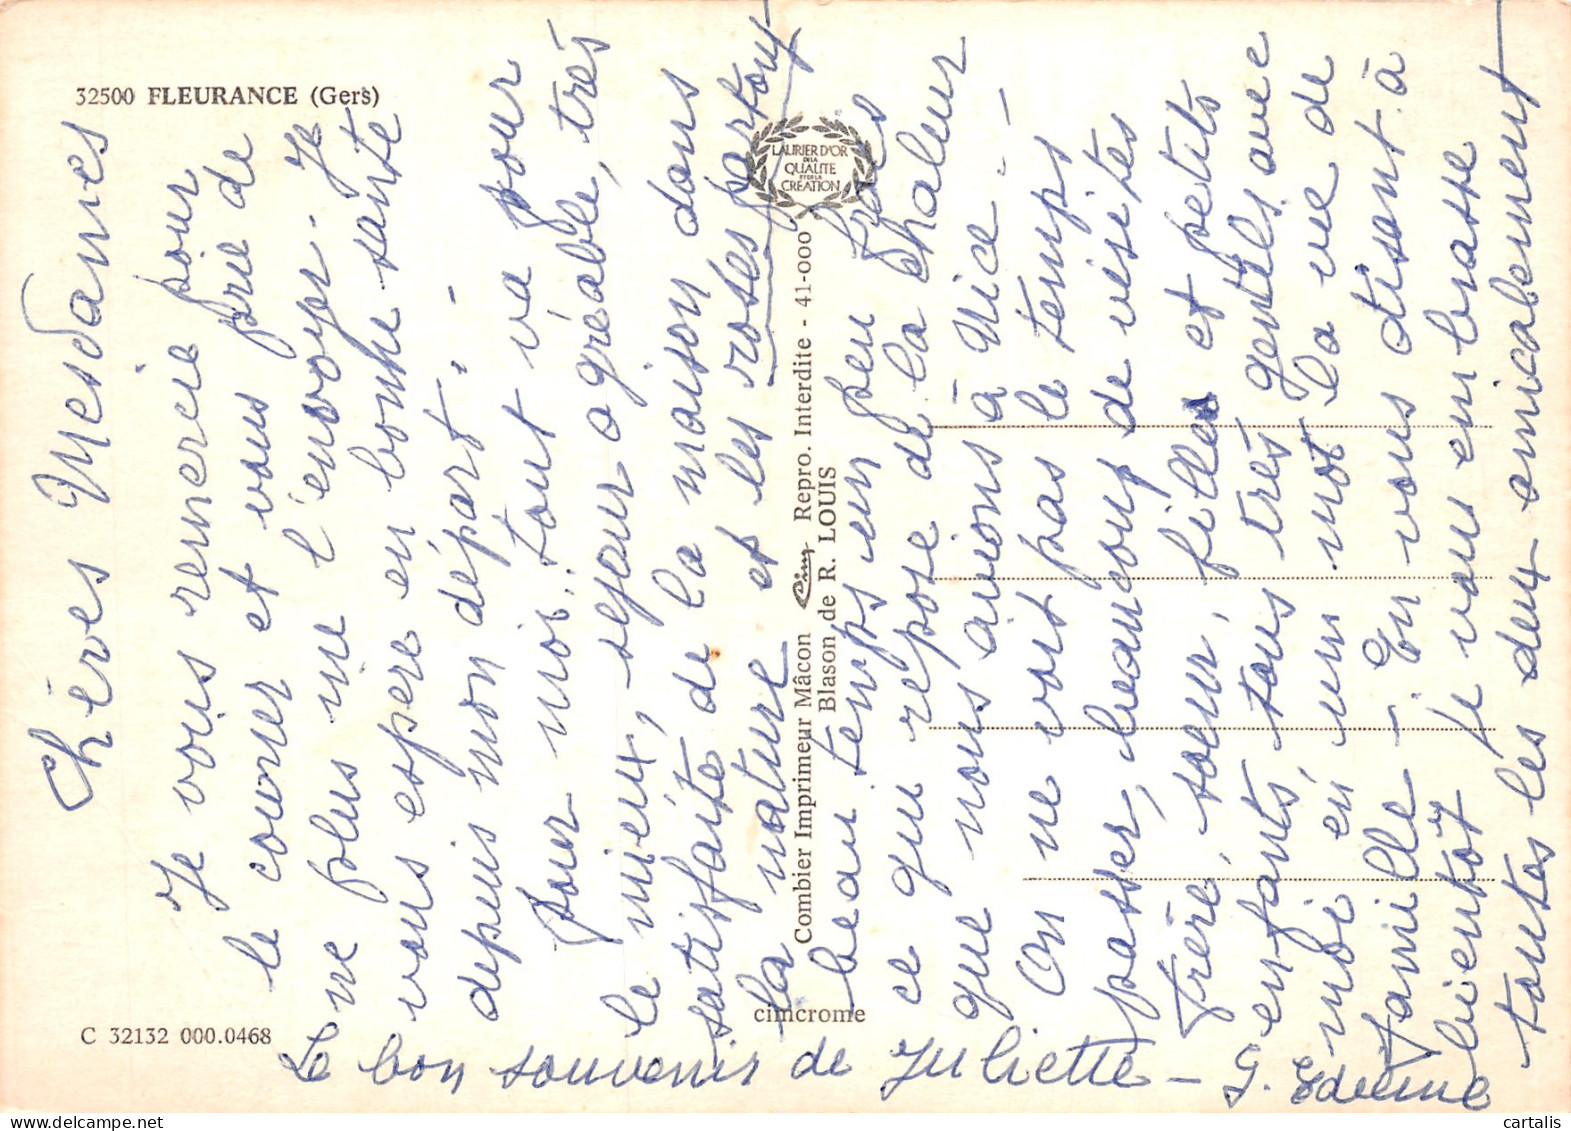 32500 FLEURANCE (Gers)
Chères Mesdames
Je vous remercie pour
le courrier et vous prie de
ne plus me l'envoyer. Je
vous espère en bonne santé
depuis mon départ. -
Pour moi, tout va pour
le mieux, séjour agréable, très
satisfaite de la maison dans
la nature et les roses partout
beau temps un peu frais
ce qui repose de la chaleur
que nous avions à Nice -
On ne voit pas le temps
passer, beaucoup de visites
frère, soeur, filles et petits
enfants, tous très gentils avec
moi en un mot la vie de
famille - . En vous disant à
bientôt je vous embrasse
toutes les deux amicalement
Le bon souvenir de Juliette - G.
LAURIER D'OR
DE LA
QUALITE
ET DE LA
CREATION
Combier Imprimeur Mâcon Cim Repro. Interdite - 41-000
Blason de R. LOUIS
cimcrome
C 32132 000.0468
cartalis - delcampe.net